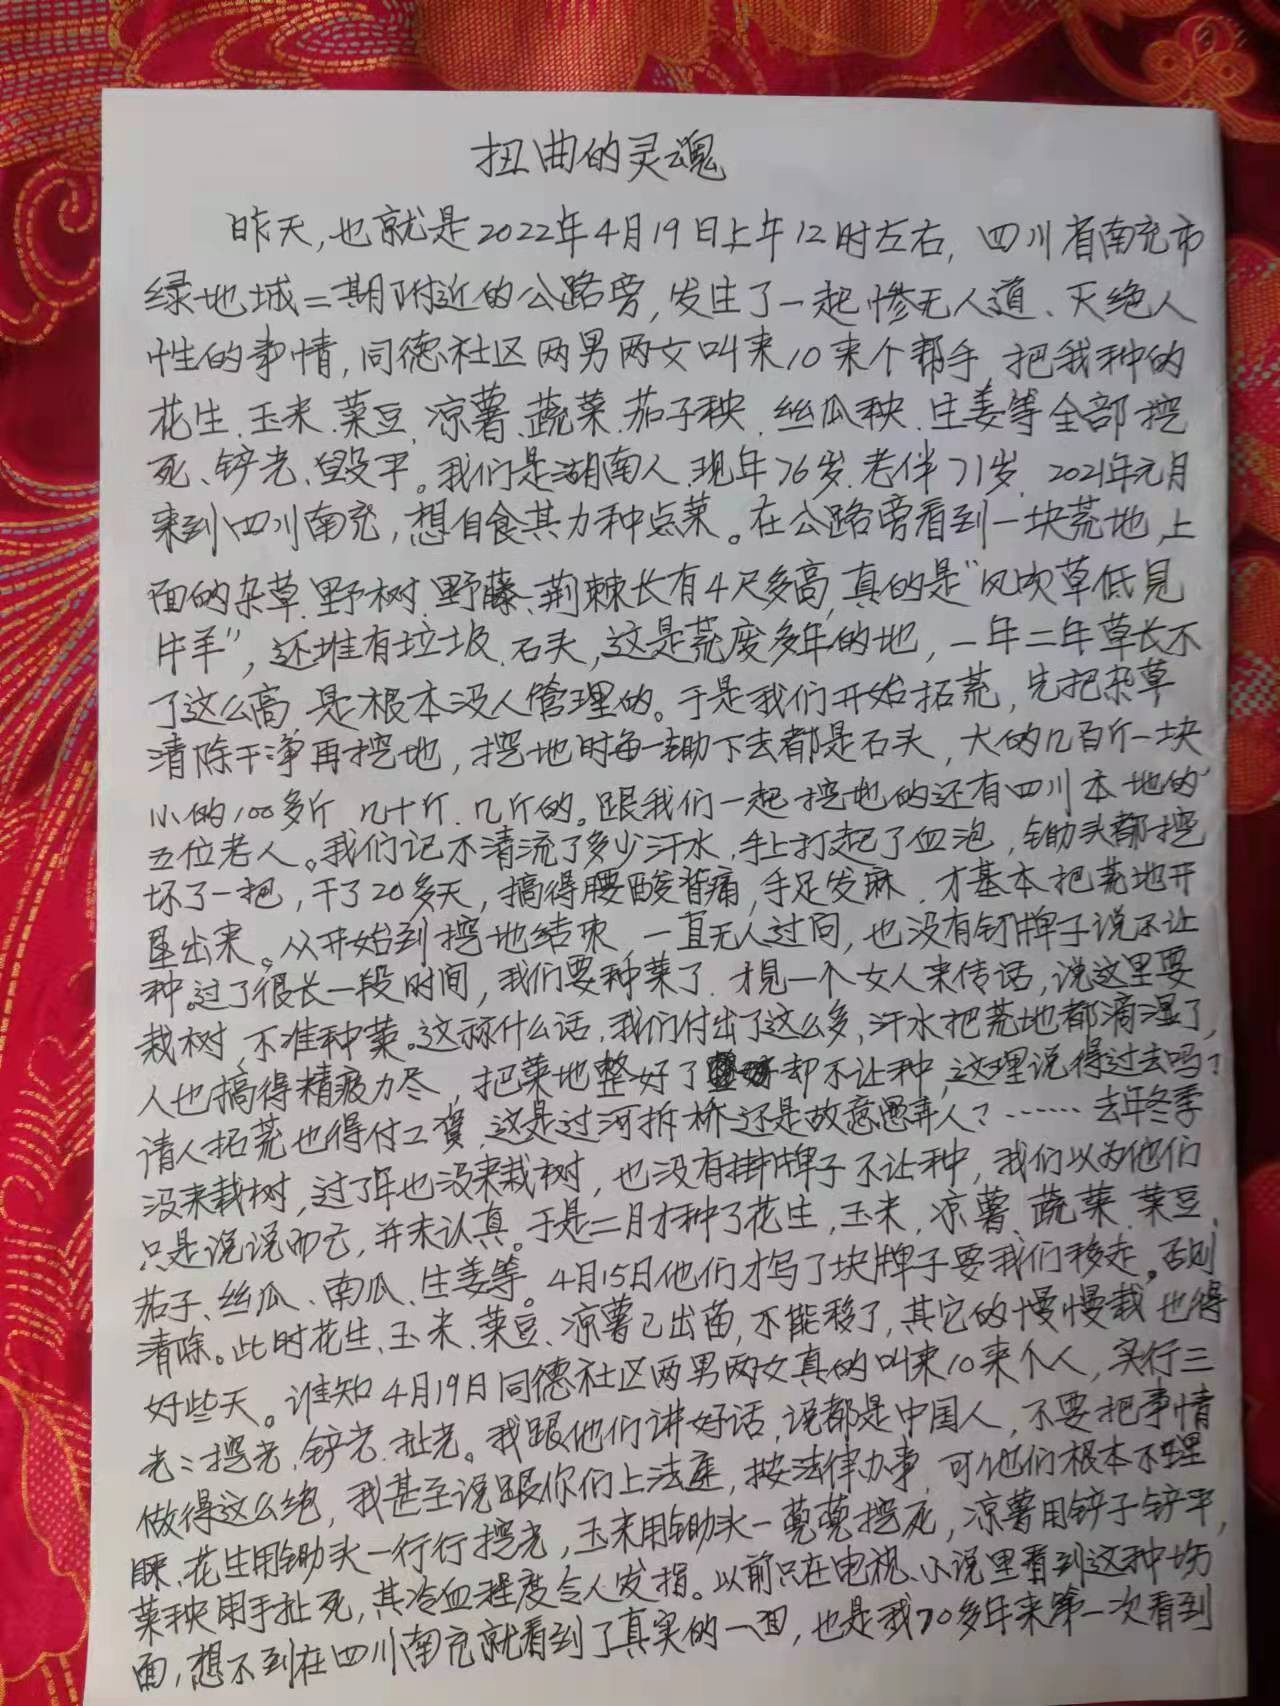 扭曲的灵魂
昨天,也就是2022年4月19日上午12时左右,四川省南充市
绿地城二期附近的公路旁,发生了一起惨无人道、灭绝人
性的事情,同德社区两男两女叫来10来个帮手,把我种的
花生、玉米、菜豆、凉薯、蔬菜、茄子秧、丝瓜秧、生姜等全部挖
死、铲光、毁平。我们是湖南人,现年76岁,老伴71岁,2021年元月
来到四川南充,想自食其力种点菜。在公路旁看到一块荒地,上
面的杂草、野树、野藤、荆棘长有4尺多高,真的是“风吹草低见
牛羊”,还堆有垃圾、石头,这是荒废多年的地,一年二年草长不
了这么高,是根本没人管理的。于是我们开始拓荒,先把杂草
清除干净再挖地,挖地时每一锄下去都是石头,大的几百斤一块
小的100多斤、几十斤、几斤的。跟我们一起挖地的还有四川本地的
五位老人。我们记不清流了多少汗水,手上打起了血泡,锄头都挖
坏了一把,干了20多天,搞得腰酸背痛,手足发麻,才基本把荒地开
垦出来。从开始到挖地结束,一直无人过问,也没有钉牌子说不让
种。过了很长一段时间,我们要种菜了,才见一个女人来传话,说这里要
栽树,不准种菜。这称什么话,我们付出了这么多,汗水把荒地都滴湿了,
人也搞得精疲力尽,把菜地整好了却不让种,这理说得过去吗?
请人拓荒也得付工资,这是过河拆桥还是故意愚弄人?……去年冬季
没来栽树,过了年也没来栽树,也没有掛牌子不让种,我们以为他们
只是说说而已,并未认真。于是二月才种了花生,玉米,凉薯、蔬菜、菜豆、
茄子、丝瓜、南瓜、生姜等。4月15日他们才写了块牌子要我们移走。否则
清除。此时花生、玉米、菜豆、凉薯已出苗,不能移了,其它的慢慢栽也得
好些天。谁知4月19日同德社区两男两女真的叫来10来个人,实行三
光:挖光、铲光、扯光。我跟他们讲好话,说都是中国人,不要把事情
做得这么绝,我甚至说跟你们上法庭,按法律办事,可他们根本不理
睬、花生用锄头一行行挖光,玉米用锄头一蔸蔸挖死,凉薯用铲子铲平,
菜秧用手扯死,其冷血程度令人发指。以前只在电视、小说里看到这种场
面,想不到在四川南充就看到了真实的一面,也是我70多年来第一次看到